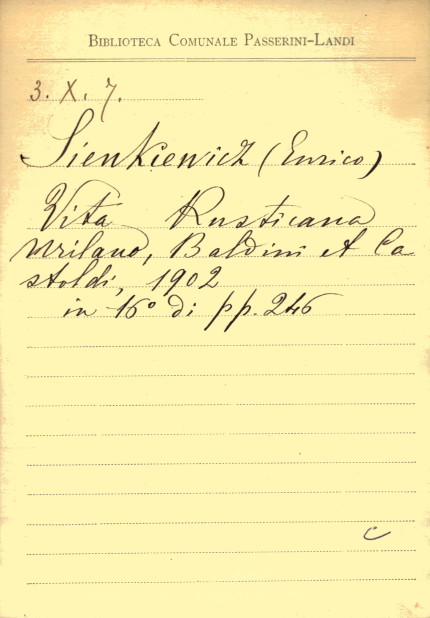 BIBLIOTECA COMUNALE PASSERINI-LANDI
3. X. 7.
Sienkiewich (Enrico)
Vita Rusticana
Milano, Baldini et Ca
stoldi, 1902
in 16° di pp. 246
C